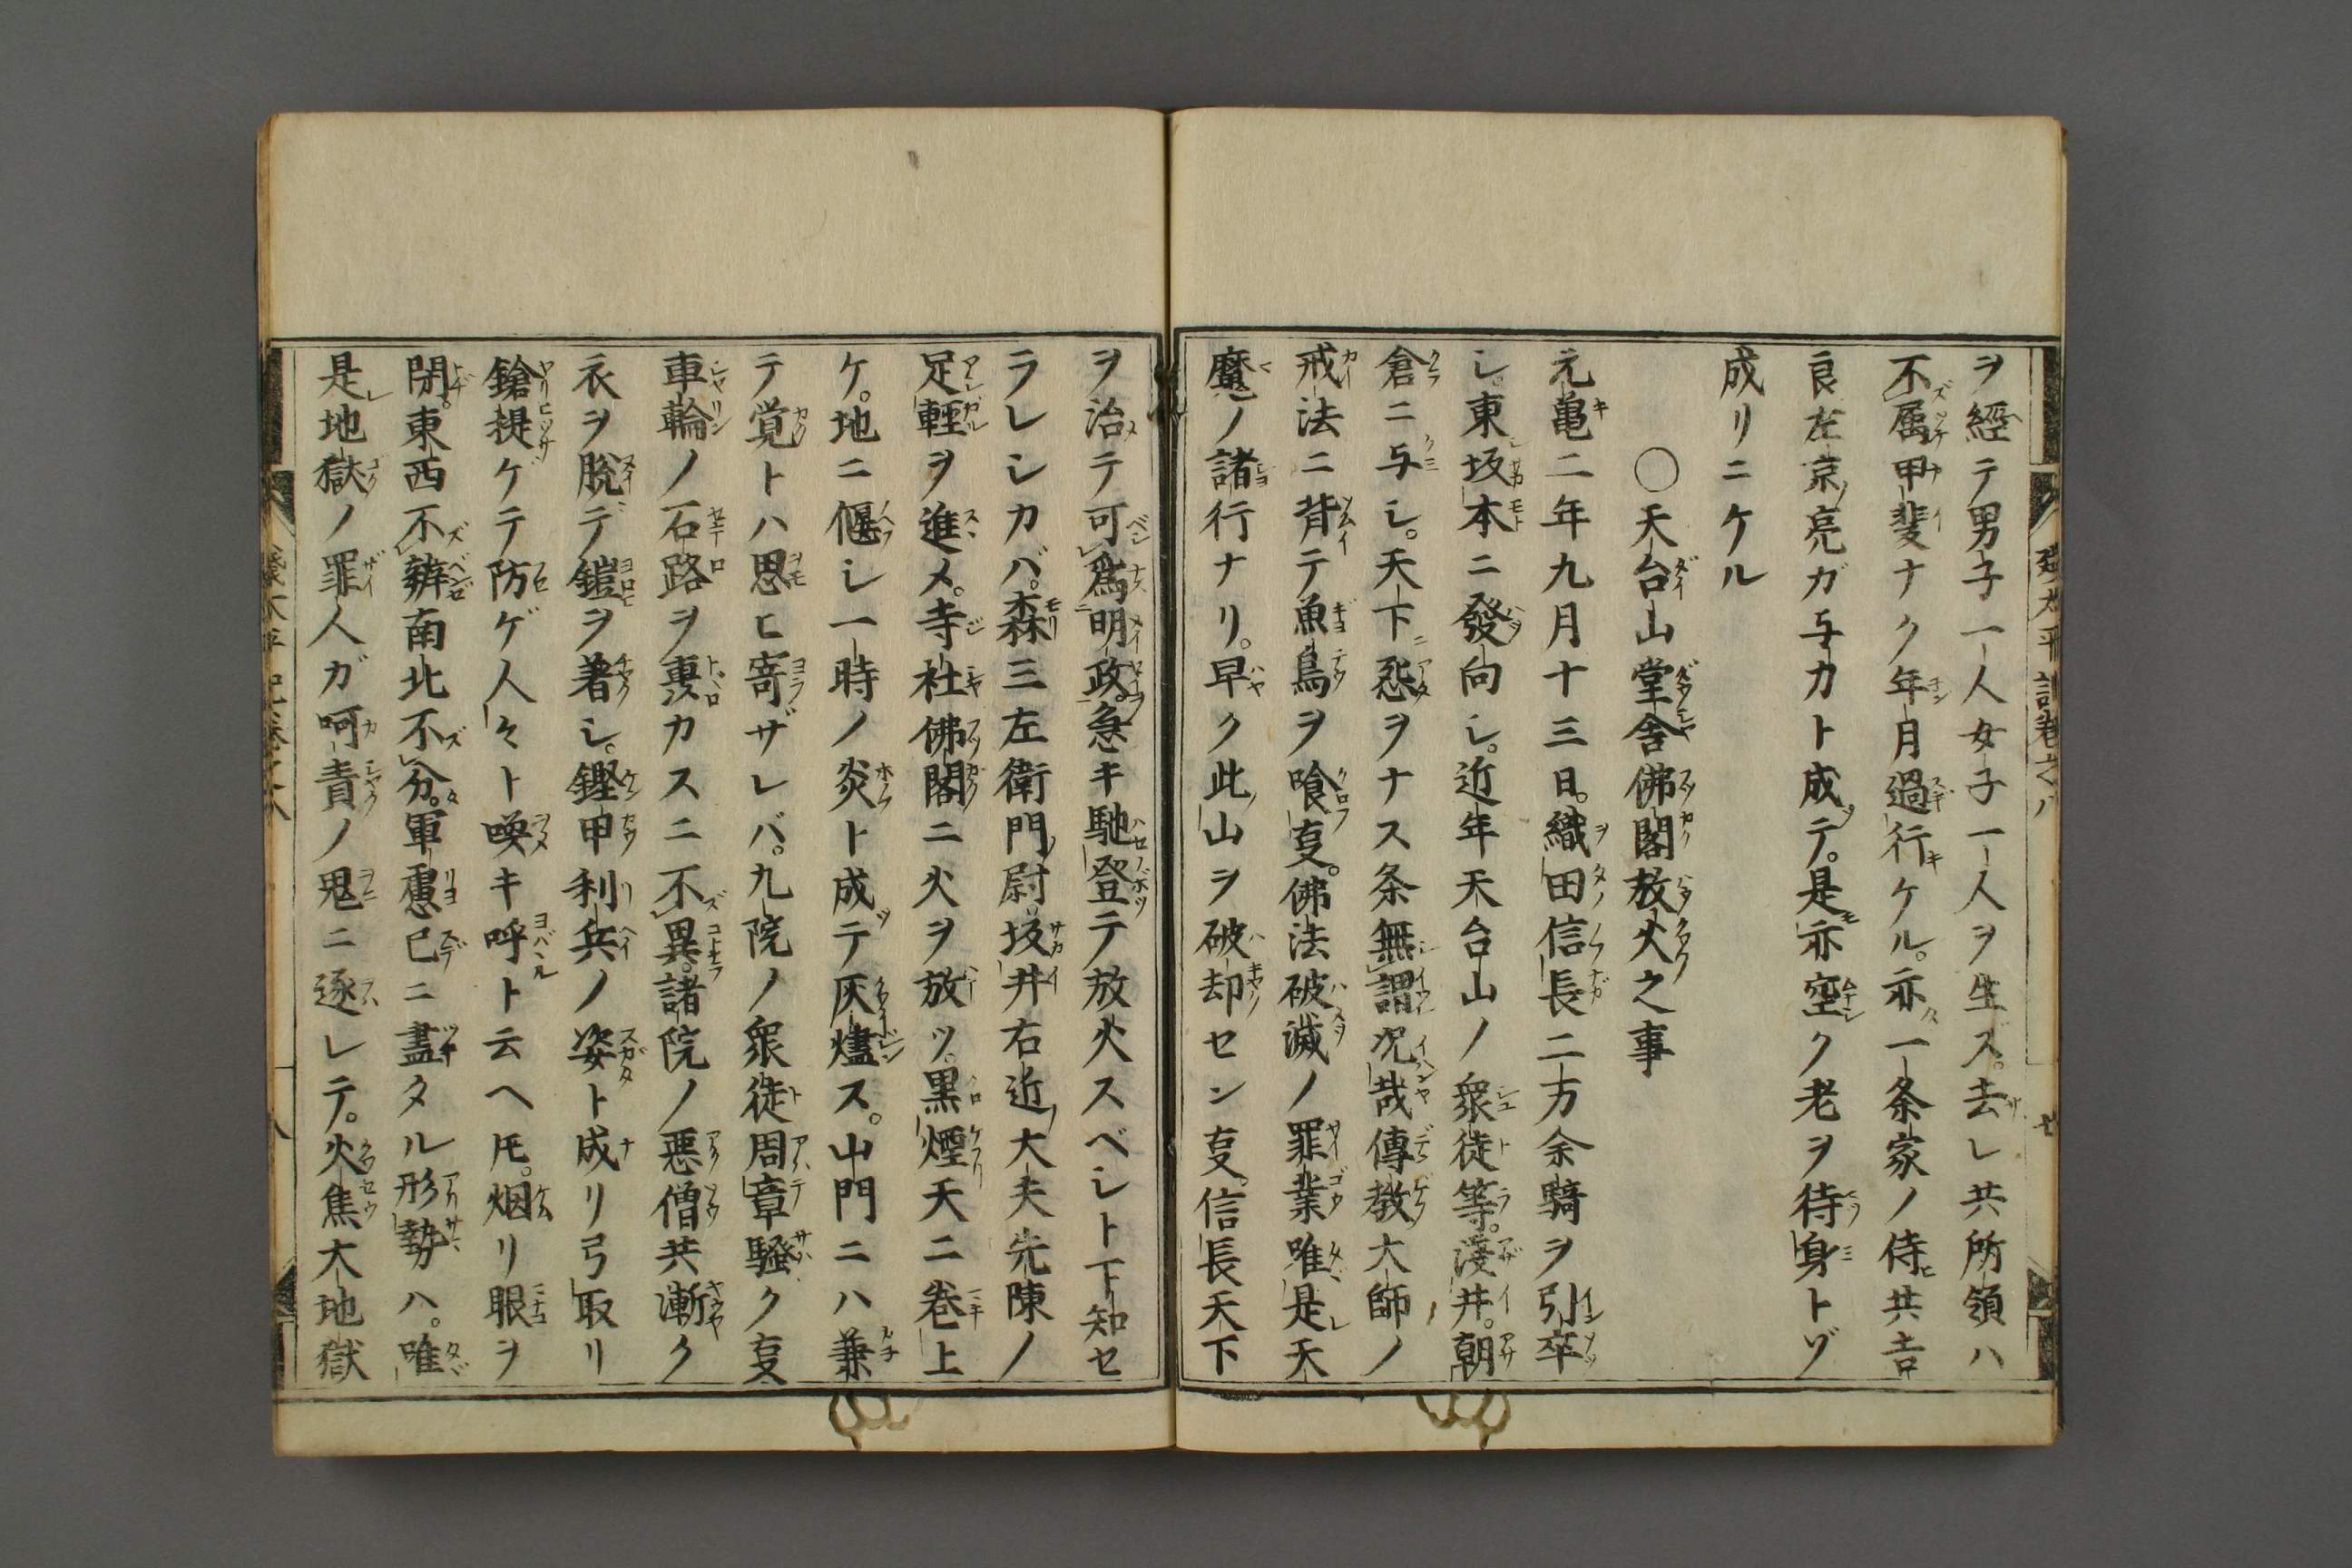 ヲ經テ男子一人女子一人ヲ生ズ。去レ共所領ハ
不屆甲斐ナク年月過行ケル。亦一条家ノ侍共吉
良左京亮ガ与力ト成テ。是亦空ク老ヲ待身トゾ
成リニケル
○天台山堂舎佛閣放火之事
元亀二年九月十三日。織田信長二万余騎ヲ引卒
シ。東坂本ニ發向シ。近年天台山ノ衆徒等。淺井。朝
倉ニ与シ。天下怨ヲナス条無謂。况哉傳教大師ノ
戒法ニ背テ魚鳥ヲ喰亊。佛法破滅ノ罪業唯是天
魔ノ諸行ナリ。早ク此山ヲ破却セン亊。信長天下
ヲ治テ可為明政。急キ馳登テ放火スベシト下知セ
ラレシカバ。森三左衛門尉。坂井右近大夫先陳ノ
足輕ヲ進メ。寺社佛閣ニ火ヲ放ツ。黒煙天ニ巻上
ケ。地ニ偃シ一時ノ炎ト成テ灰燼ス。山門ニハ兼
テ覚トハ思ヒ寄ザレバ。九院ノ衆徒周章騒ク亊
車輪ノ石路ヲ轟カスニ不異。諸院ノ悪僧共漸ク
衣ヲ脱デ鎧ヲ著シ。鏗甲利兵ノ姿ト成リ弓取リ
鎗提ゲテ防ゲ人々ト喚キ呼ト云ヘ𪜈。烟リ眼ヲ
閉。東西不辨南北不分。軍慮已ニ盡タル形勢ハ。唯
是地獄ノ罪人ガ呵責ノ鬼ニ逐レテ。火焦大地獄